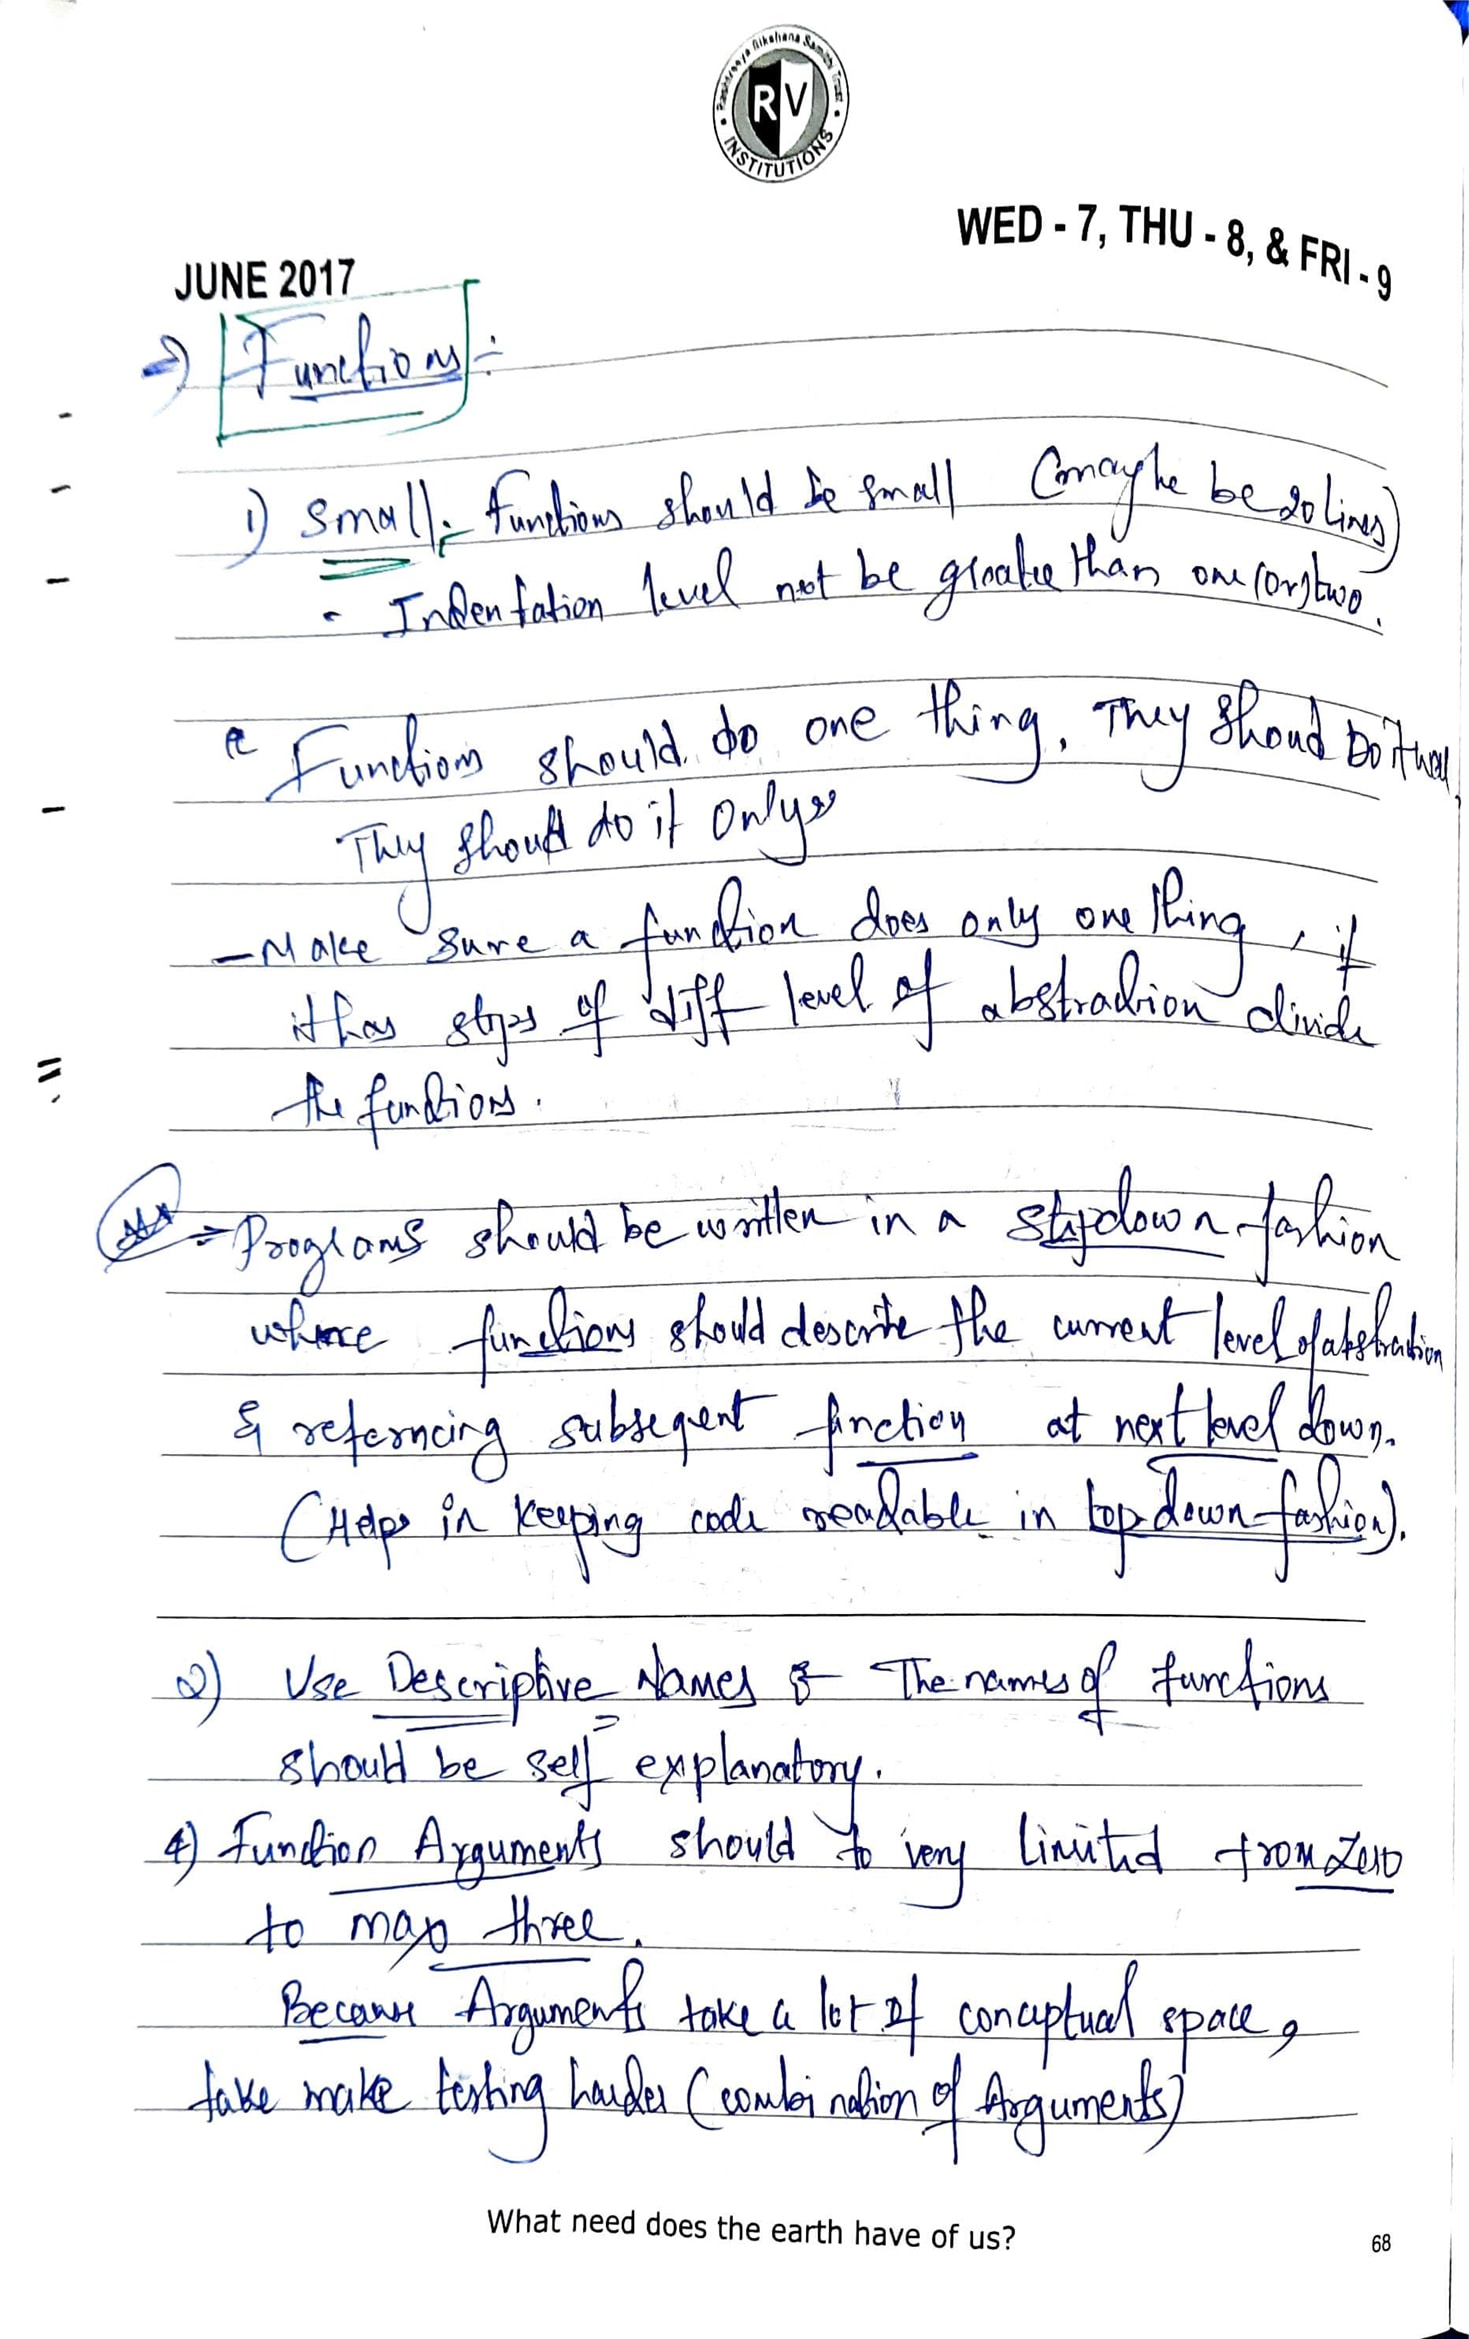 Rashtreeya Sikshana Samithi Trust
RV
INSTITUTIONS
WED - 7, THU - 8, & FRI - 9
JUNE 2017
→ Functions :-
1) Small :- functions should be small (maybe be 20 lines)
- Indentation level not be greater than one (or) two.
Functions should do one thing, They shoud Do it well
They should do it only
- Make sure a function does only one thing, if
it has steps of diff level of abstraction divide
the functions.
⇒ Programs should be written in a stepdown fashion
where functions should describe the current level of abstraction
& referncing subseqent function at next level down.
(Helps in keeping code readable in top down-fashion).
2) Use Descriptive Names :- The names of functions
should be self explanatory.
4) Function Arguments should to very limited from zero
to max three.
Because Arguments take a lot of conceptual space,
take make testing harder (combination of Arguments)
What need does the earth have of us?
68